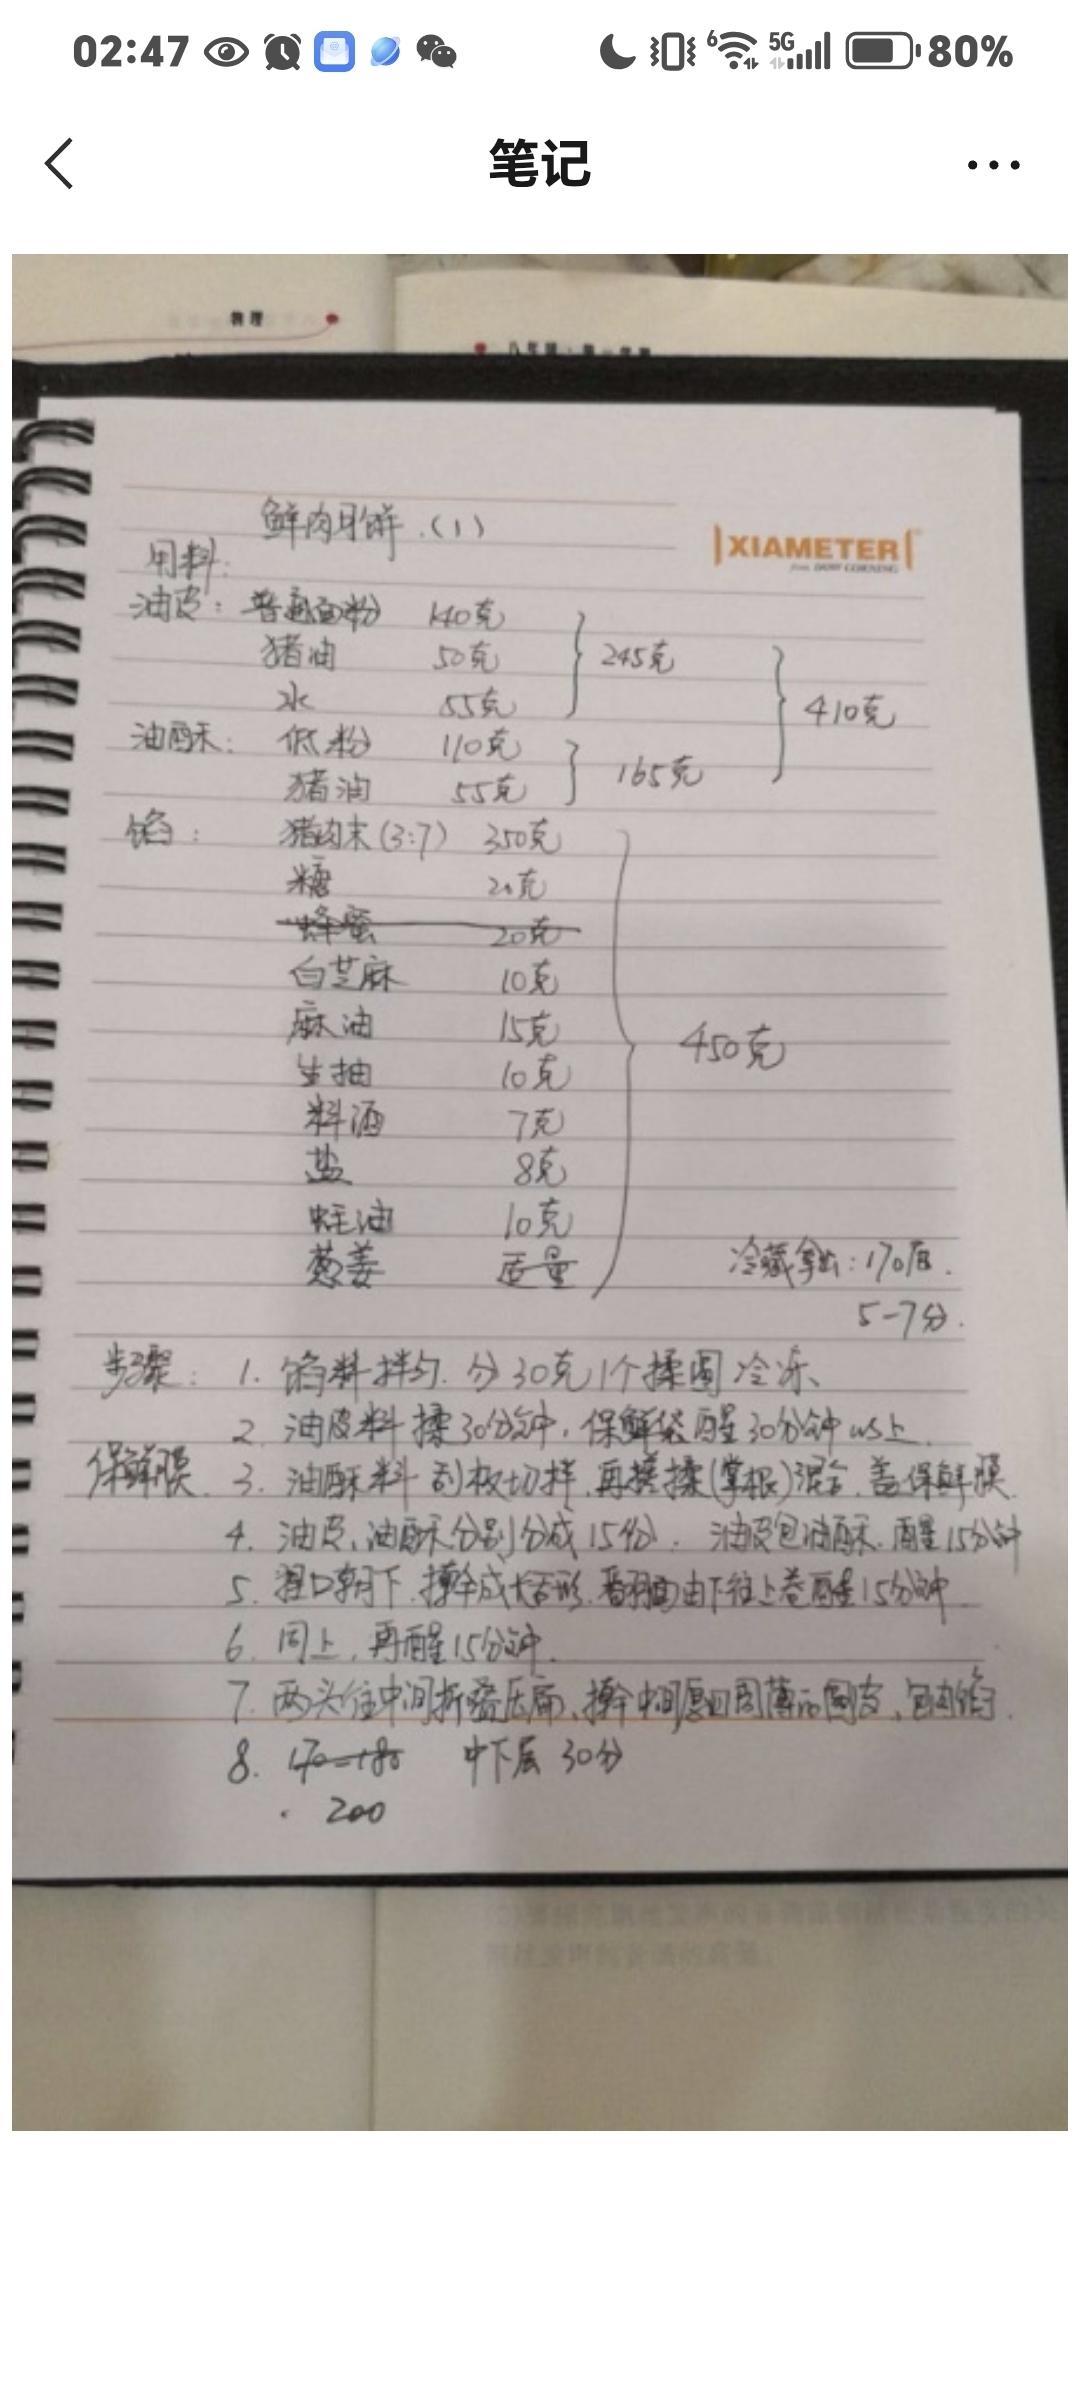 02:47 6 5G 80%
笔记
物理
八年级·第一学期
鲜肉月饼.(1)
XIAMETER
from DOW CORNING
用料:
油皮: 普通面粉 140克
猪油 50克 245克
水 55克 410克
油酥: 低粉 110克
猪油 55克 165克
馅: 猪肉末(3:7) 350克
糖 20克
蜂蜜 20克
白芝麻 10克
麻油 15克 450克
生抽 10克
料酒 7克
盐 8克
蚝油 10克
葱姜 适量 冷藏拿出:170度.
5-7分.
步骤: 1. 馅料拌匀. 分30克1个揉圆 冷冻、
2. 油皮料 揉30分钟, 保鲜袋醒30分钟以上.
保鲜膜. 3. 油酥料 刮板切拌, 再搓揉(掌根)混合. 盖保鲜膜.
4. 油皮、油酥分别分成15份. 油皮包油酥. 醒15分钟
5. 捏口朝下. 擀成长舌形. 翻面由下往上卷醒15分钟.
6. 同上, 再醒15分钟.
7. 两头往中间折叠压扁、擀中间厚四周薄的圆皮、包肉馅.
8. 170-180 中下层 30分
200